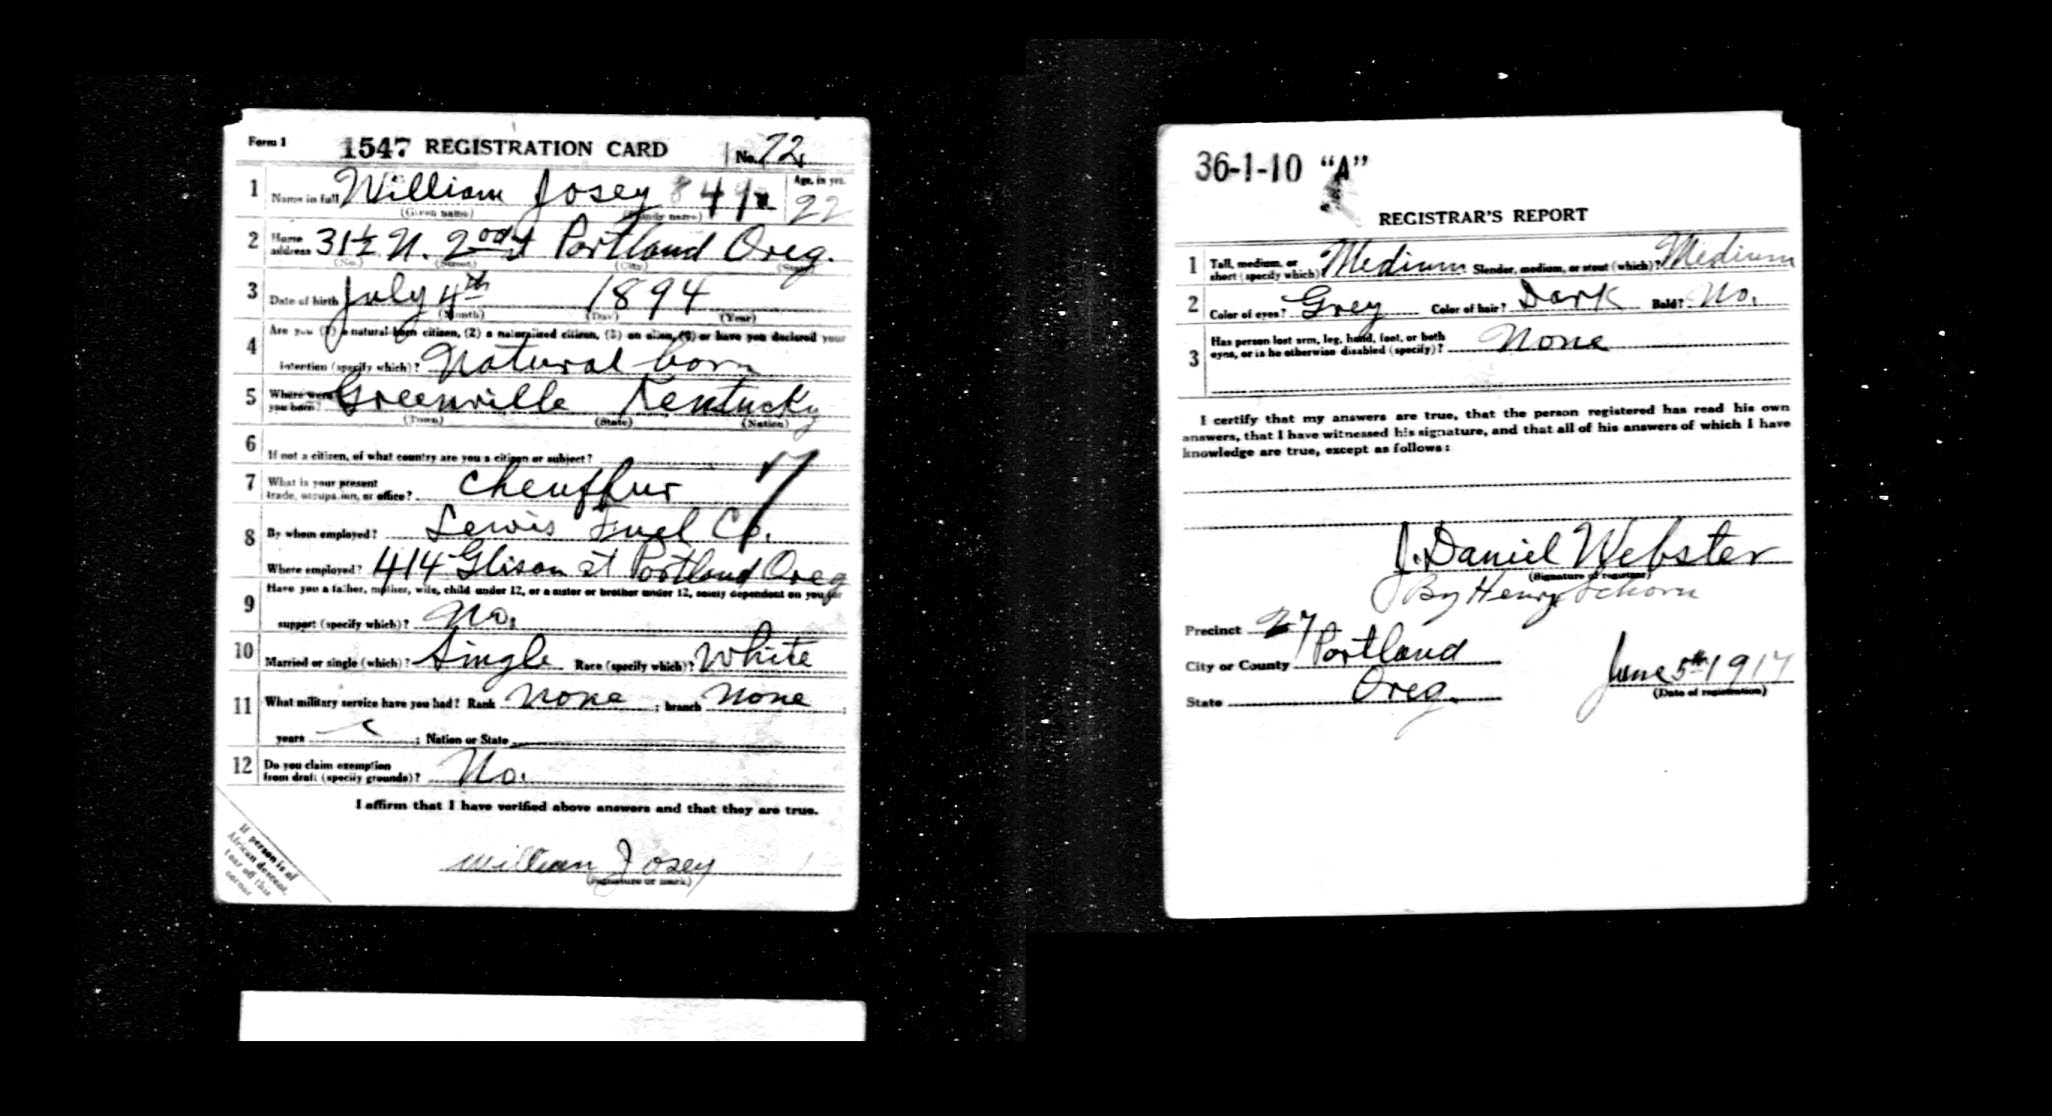 Form 1 1547 REGISTRATION CARD No. 72
1 Name in full William Josey 841 Age, in yrs. 22
(Given name) (Family name)
2 Home address 31½ N. 2nd St Portland Oreg.
(No.) (Street) (City) (State)
3 Date of birth July 4th 1894
(Month) (Day) (Year)
4 Are you (1) a natural-born citizen, (2) a naturalized citizen, (3) an alien, (4) or have you declared your
intention (specify which)? Natural born
5 Where were you born? Greenville Kentucky
(Town) (State) (Nation)
6 If not a citizen, of what country are you a citizen or subject?
7 What is your present trade, occupation, or office? Cheuffur
8 By whom employed? Lewis Fuel Co.
Where employed? 414 Glisan St Portland Oreg
9 Have you a father, mother, wife, child under 12, or a sister or brother under 12, solely dependent on you for
support (specify which)? No.
10 Married or single (which)? Single Race (specify which)? White
11 What military service have you had? Rank None ; branch None ;
years ; Nation or State
12 Do you claim exemption from draft (specify grounds)? No.
I affirm that I have verified above answers and that they are true.
William Josey
(Signature or mark)
If person is of
African descent,
tear off this
corner
36-1-10 "A"
REGISTRAR'S REPORT
1 Tall, medium, or short (specify which)? Medium Slender, medium, or stout (which)? Medium
2 Color of eyes? Grey Color of hair? Dark Bald? No.
3 Has person lost arm, leg, hand, foot, or both eyes, or is he otherwise disabled (specify)? None
I certify that my answers are true, that the person registered has read his own
answers, that I have witnessed his signature, and that all of his answers of which I have
knowledge are true, except as follows:
J. Daniel Webster
(Signature of registrar)
By Henry Schorn
Precinct 27
City or County Portland
State Oreg. June 5th 1917
(Date of registration)